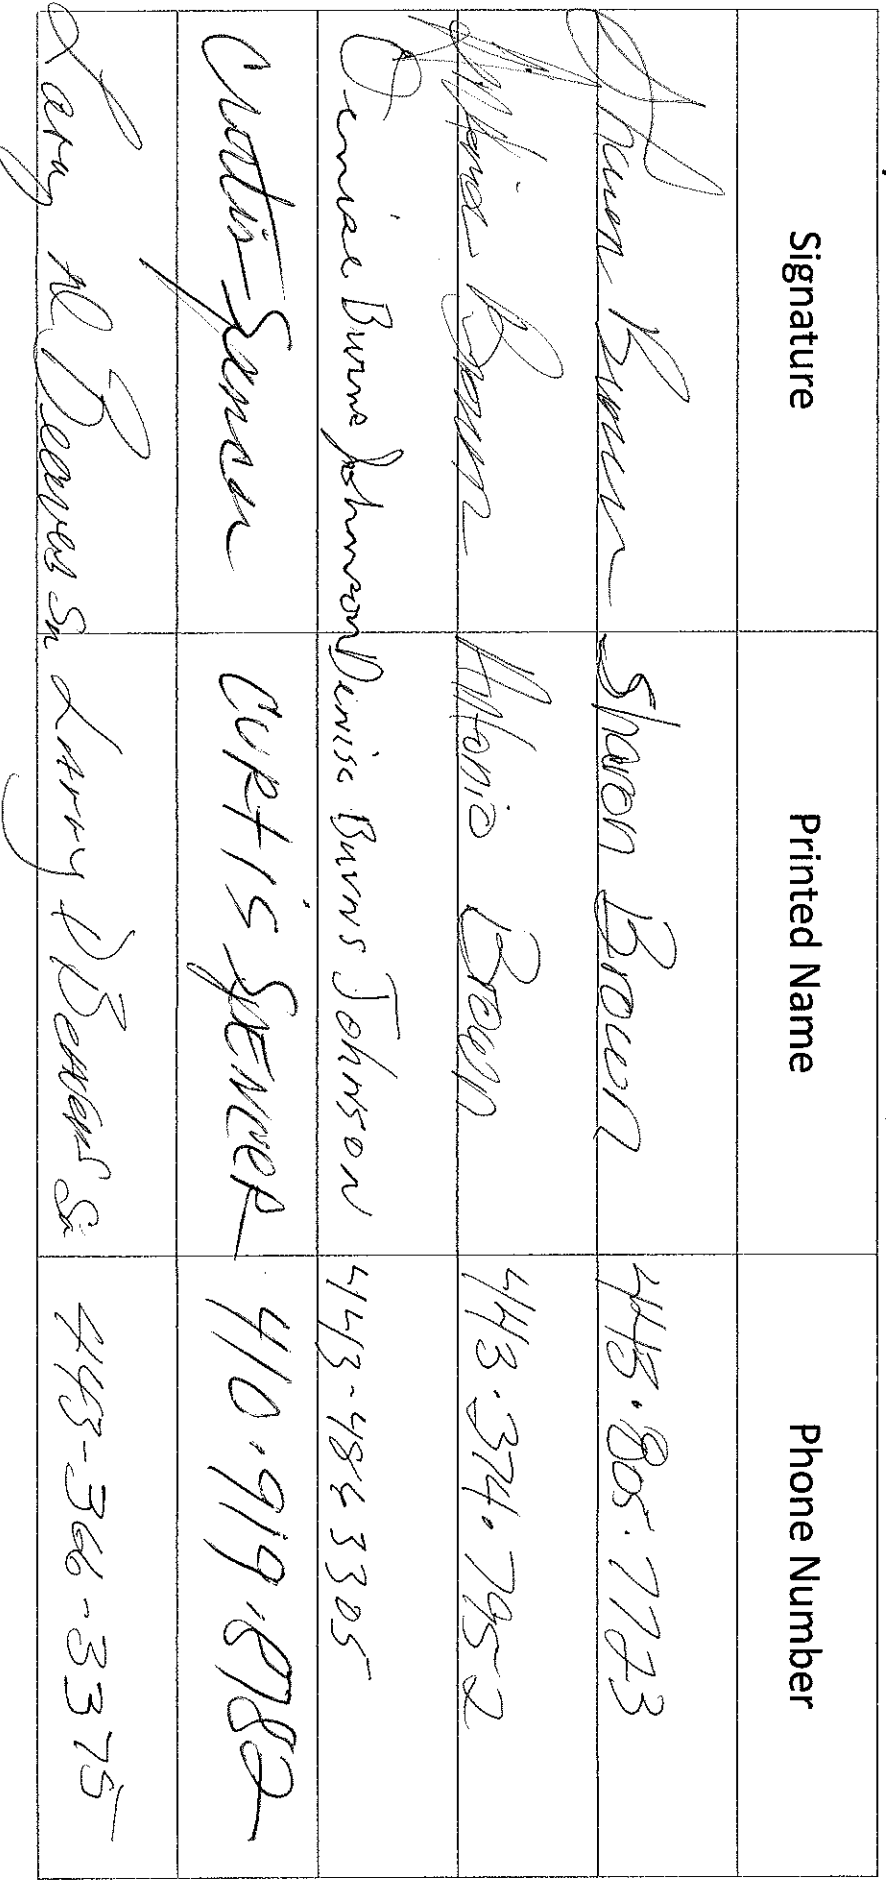 Signature Printed Name Phone Number
Sharon Brown Sharon Brown 443.805.7723
Brown Brown 443.374.7952
Denise Burns Johnson Denise Burns Johnson 443-486 3305
Curtis Spencer CURtis SpENceR 410.919.8782
Larry D Beavers Sr Larry D Beavers Sr 443-366-3375